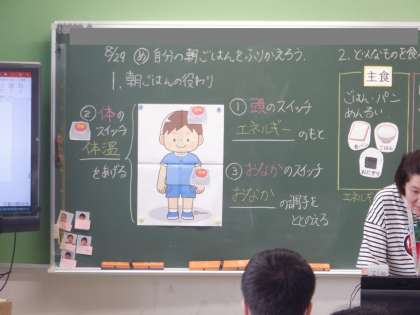 8/29 め 自分の朝ごはんをふりかえろう.
1. 朝ごはんの役わり
① 頭のスイッチ
エネルギー のもと
② 体の
スイッチ
体温
をあげる
③ おなかのスイッチ
おなか の調子を
ととのえる
2. どんなものを食
主食
ごはん・パン
めんるい
ごはん
おにぎり
エネルギ